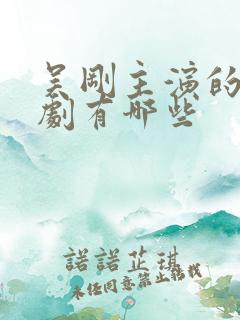 吴剛主演的
劇有哪些
諾諾芷琪
未经同意禁止转载